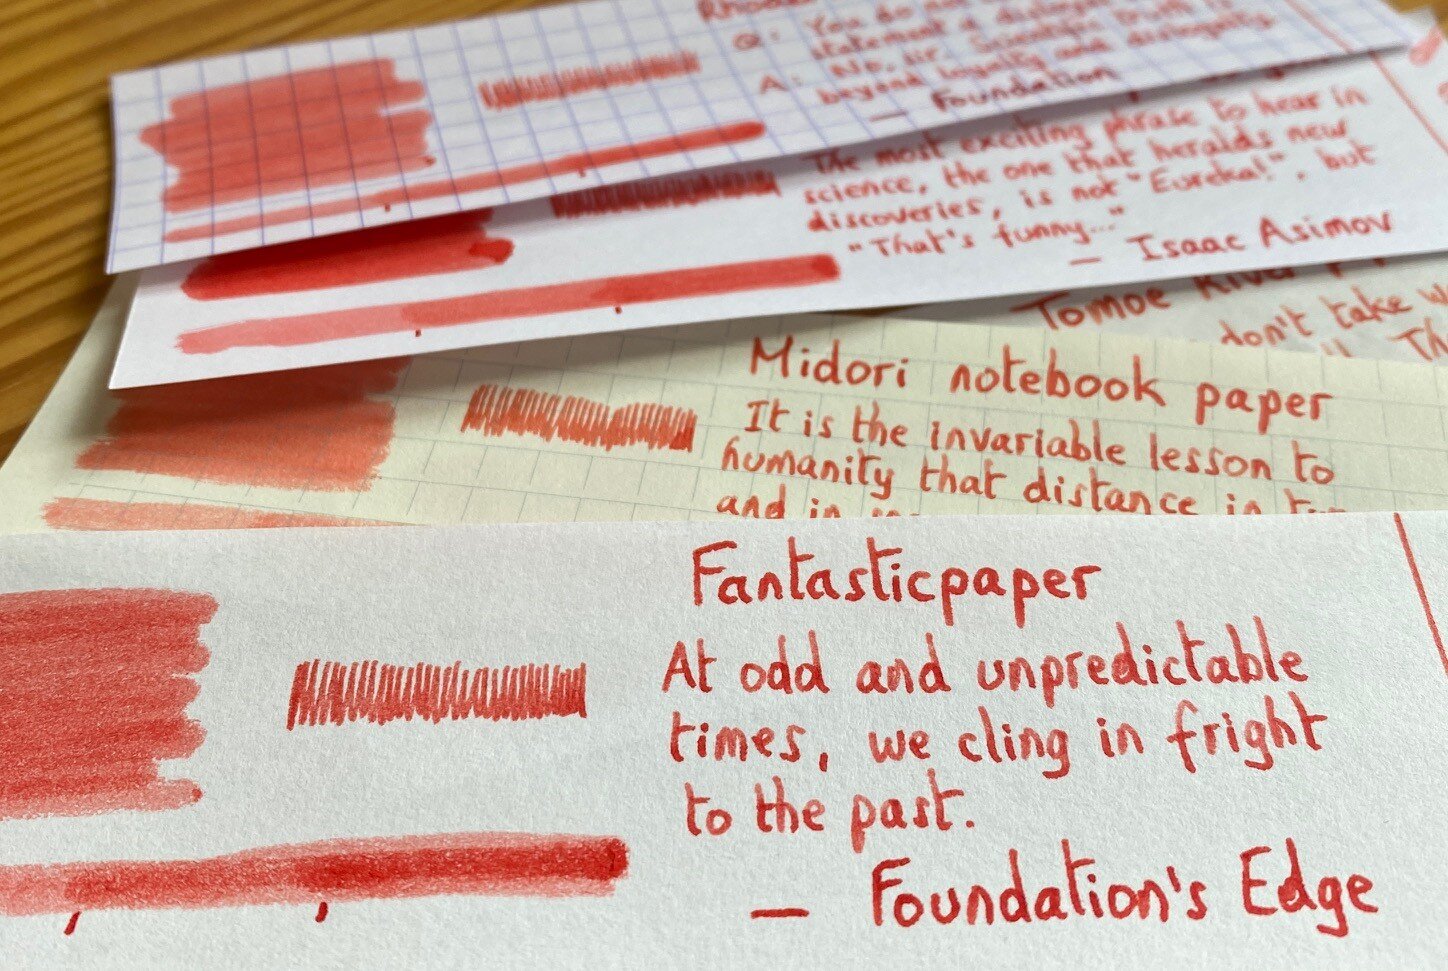 Q: You do not
statement a disloyal
A: No, sir. Scientific truth is
beyond loyalty and disloyalty.
— Foundation
The most exciting phrase to hear in
science, the one that heralds new
discoveries, is not "Eureka!", but
"That's funny..."
— Isaac Asimov
Tomoe River
don't take
Midori notebook paper
It is the invariable lesson to
humanity that distance in
and in
Fantasticpaper
At odd and unpredictable
times, we cling in fright
to the past.
— Foundation's Edge